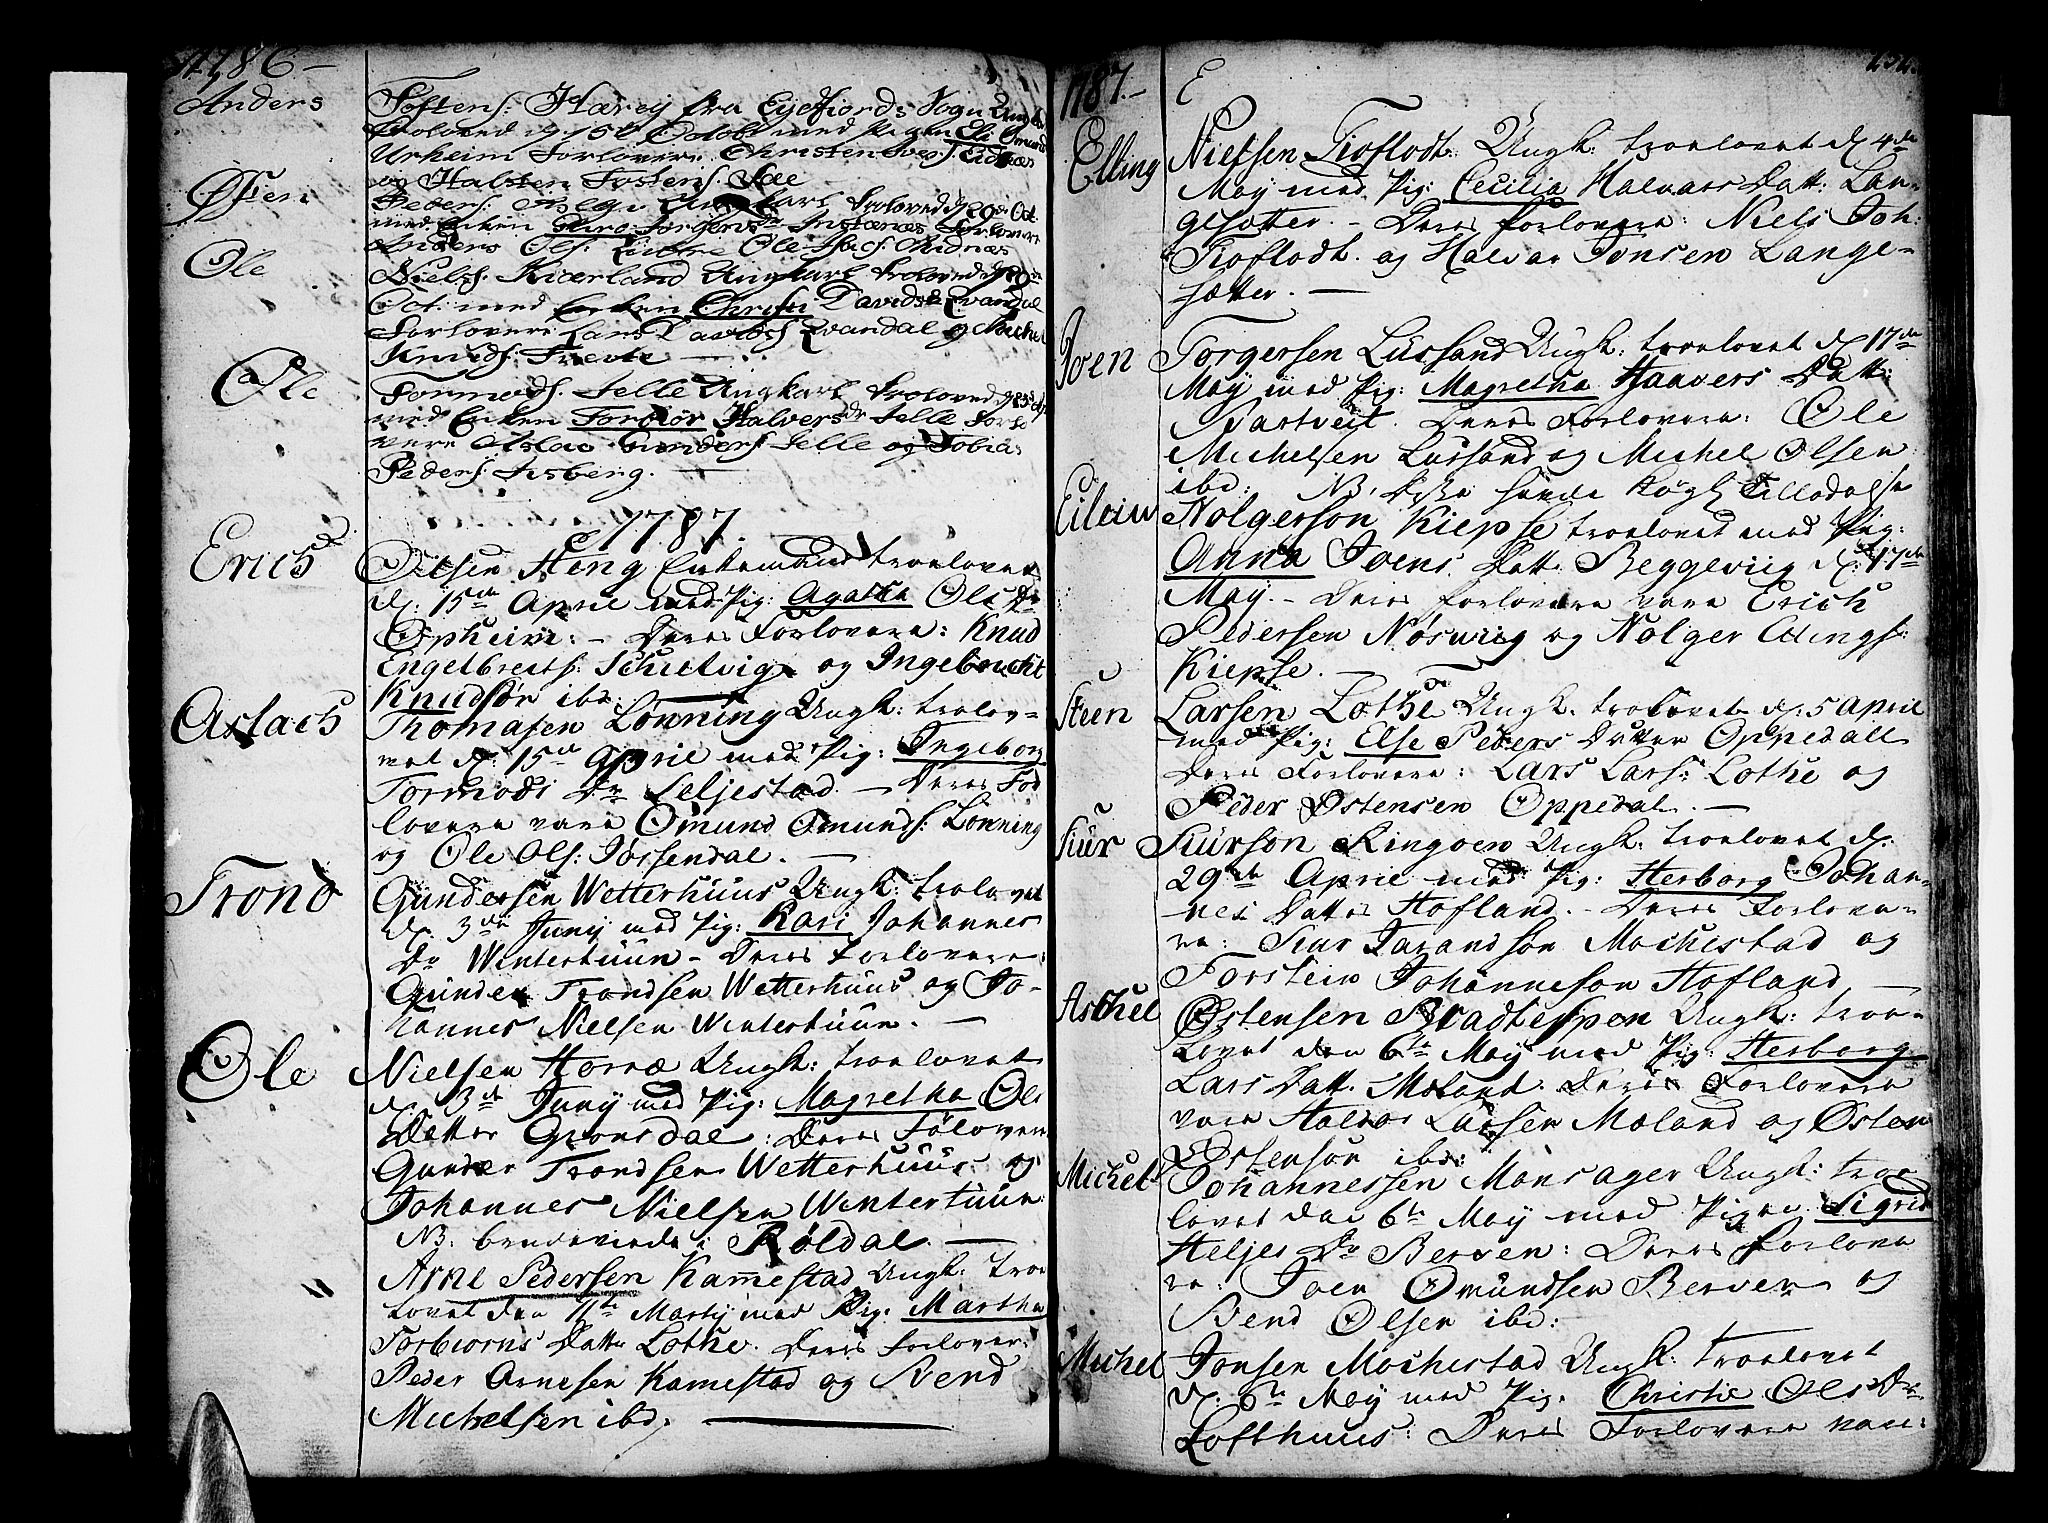 1786 –
Anders Tostens: Hæreij fra Eijdfiords Sogn
troloved d. 15de Octobr med Pigen Eli
Urheim Forlovere Christen Ivers: Eidnæs
og Halsten Tostens: Sæe
Østen Peders: Helgu Ungkarl troloved d. 29de Oct.
med Enken Guro Torgersdr Instenæs Forlovere
Anders Ols: Lutre Ole Isacs: Eidnæs
Ole Niels: Kierland Ungkarl troloved d.
Oct: med Enken Christi Davidsdr Qvandal
Forlovere Lars Davids: Qvandal og Michel
Knuds: Trevte –
Ole Tormods: Selle Ungkarl troloved d.
med Enken Tordiør Halversdr Selle Forlo
vere Aslac Gunders: Selle og Tobias
Peders: Isberg. –
1787.
Erich Olsen Steng Enkemand troelovet
d: 15de April med Pig: Agatha Ols Dr
Opheim: – Deres Forlovere: Knud
Engelbreths: Schielvig og Ingebrecht
Knudsøn ibd: –
Aslach Thomasen Lønning Ungk: trolov-
vet d: 15de April med Pig: Ingeborg
Tormods Dr Seljestad. – Deres For
lovere vare Omund Omunds: Lønning
og Ole Ols: Jøssendal. –
Trond Gundersen Wetterhuus Ungk: trolovet
d. 3de Junij med Pig: Kari Johannes
Dr Wintertuun – Deres Forlovere:
Gunder Trondsen Wetterhuus og Jo-
hannes Nielsen Wintertuun. –
Ole Nielsen Horræ Ungk: troelovet
d. 3de Junij med Pig: Magretha Ols
Datter Gronsdal: Deres Følovere
Gunder Trondsen Wetterhuus og
Johannes Nielsen Wintertuun
NB. brudeviede i Røldal. –
Arne Pedersen Kamestad Ungk: troe
lovet den 11te Martij med Pig: Martha
Torbiorns Datt: Lothe. Deres Forlover:
Peder Arnesen Kamestad og Svend
Michelsen ibd. –
1787. –
Elling Nielsen Tioflodt: Ungk: troelovet d. 4de
Maij med Pig: Cecilia Halvars Datt: Lan-
gesætter. – Deres Forlovere: Niels Joh:
Tioflodt. og Halvar Jonsen Lange-
sætter. –
Joen Torgersen Lussand Ungk: troelovet d. 17de
Maij med Pig: Magretha Haavers Datt:
Svartveit. Deres Forlovere: Ole
Michelsen Lussand og Michel Olsen
ibd: NB. Disse havde Kogl: Tilladelse
Eileiv Holgerson Kiepse troelovet med Pig:
Anna Joens Datt: Beggeviig d: 17de
Maij – Deres Forlovere vare Erich
Pedersen Nøsviig og Holger Edings:
Kiepse. –
Steen Larsen Lothe Ungk. troelovet d: 5 April
med Pig: Else Peders Datter Oppedall
Deres Forlovere: Lars Lars: Lothe og
Peder Østensen Oppedal. –
Siur Siurson Ringoen Ungk: troelovet d:
29de April med Pig: Herborg Johan-
nes Datter Hofland. – Deres Forlove-
re: Siur Jarandsøn Mochestad og
Torstein Johannesøn Hofland –
Aschel Østensen Bradtespen Ungk: troe-
lovet den 6te Maij med Pig: Herborg
Lars Datt. Moland. Deres Forlovere
vare Halvor Larsen Moland og Østen
Østensøn ibd:
Michel Johannessen Monsager Ungk: troe
lovet den 6te Maij med Pigen Sigrid
Heljes Dr Berven: Deres Forlove
re: Joen Omundsen Berven og
Svend Olsen ibd:
Michel Jonsen Mochestad Ungk: troelovet
d: 6te Maij med Pig: Christie Ols Dr
Lofthuus: Deres Forlovere vare: